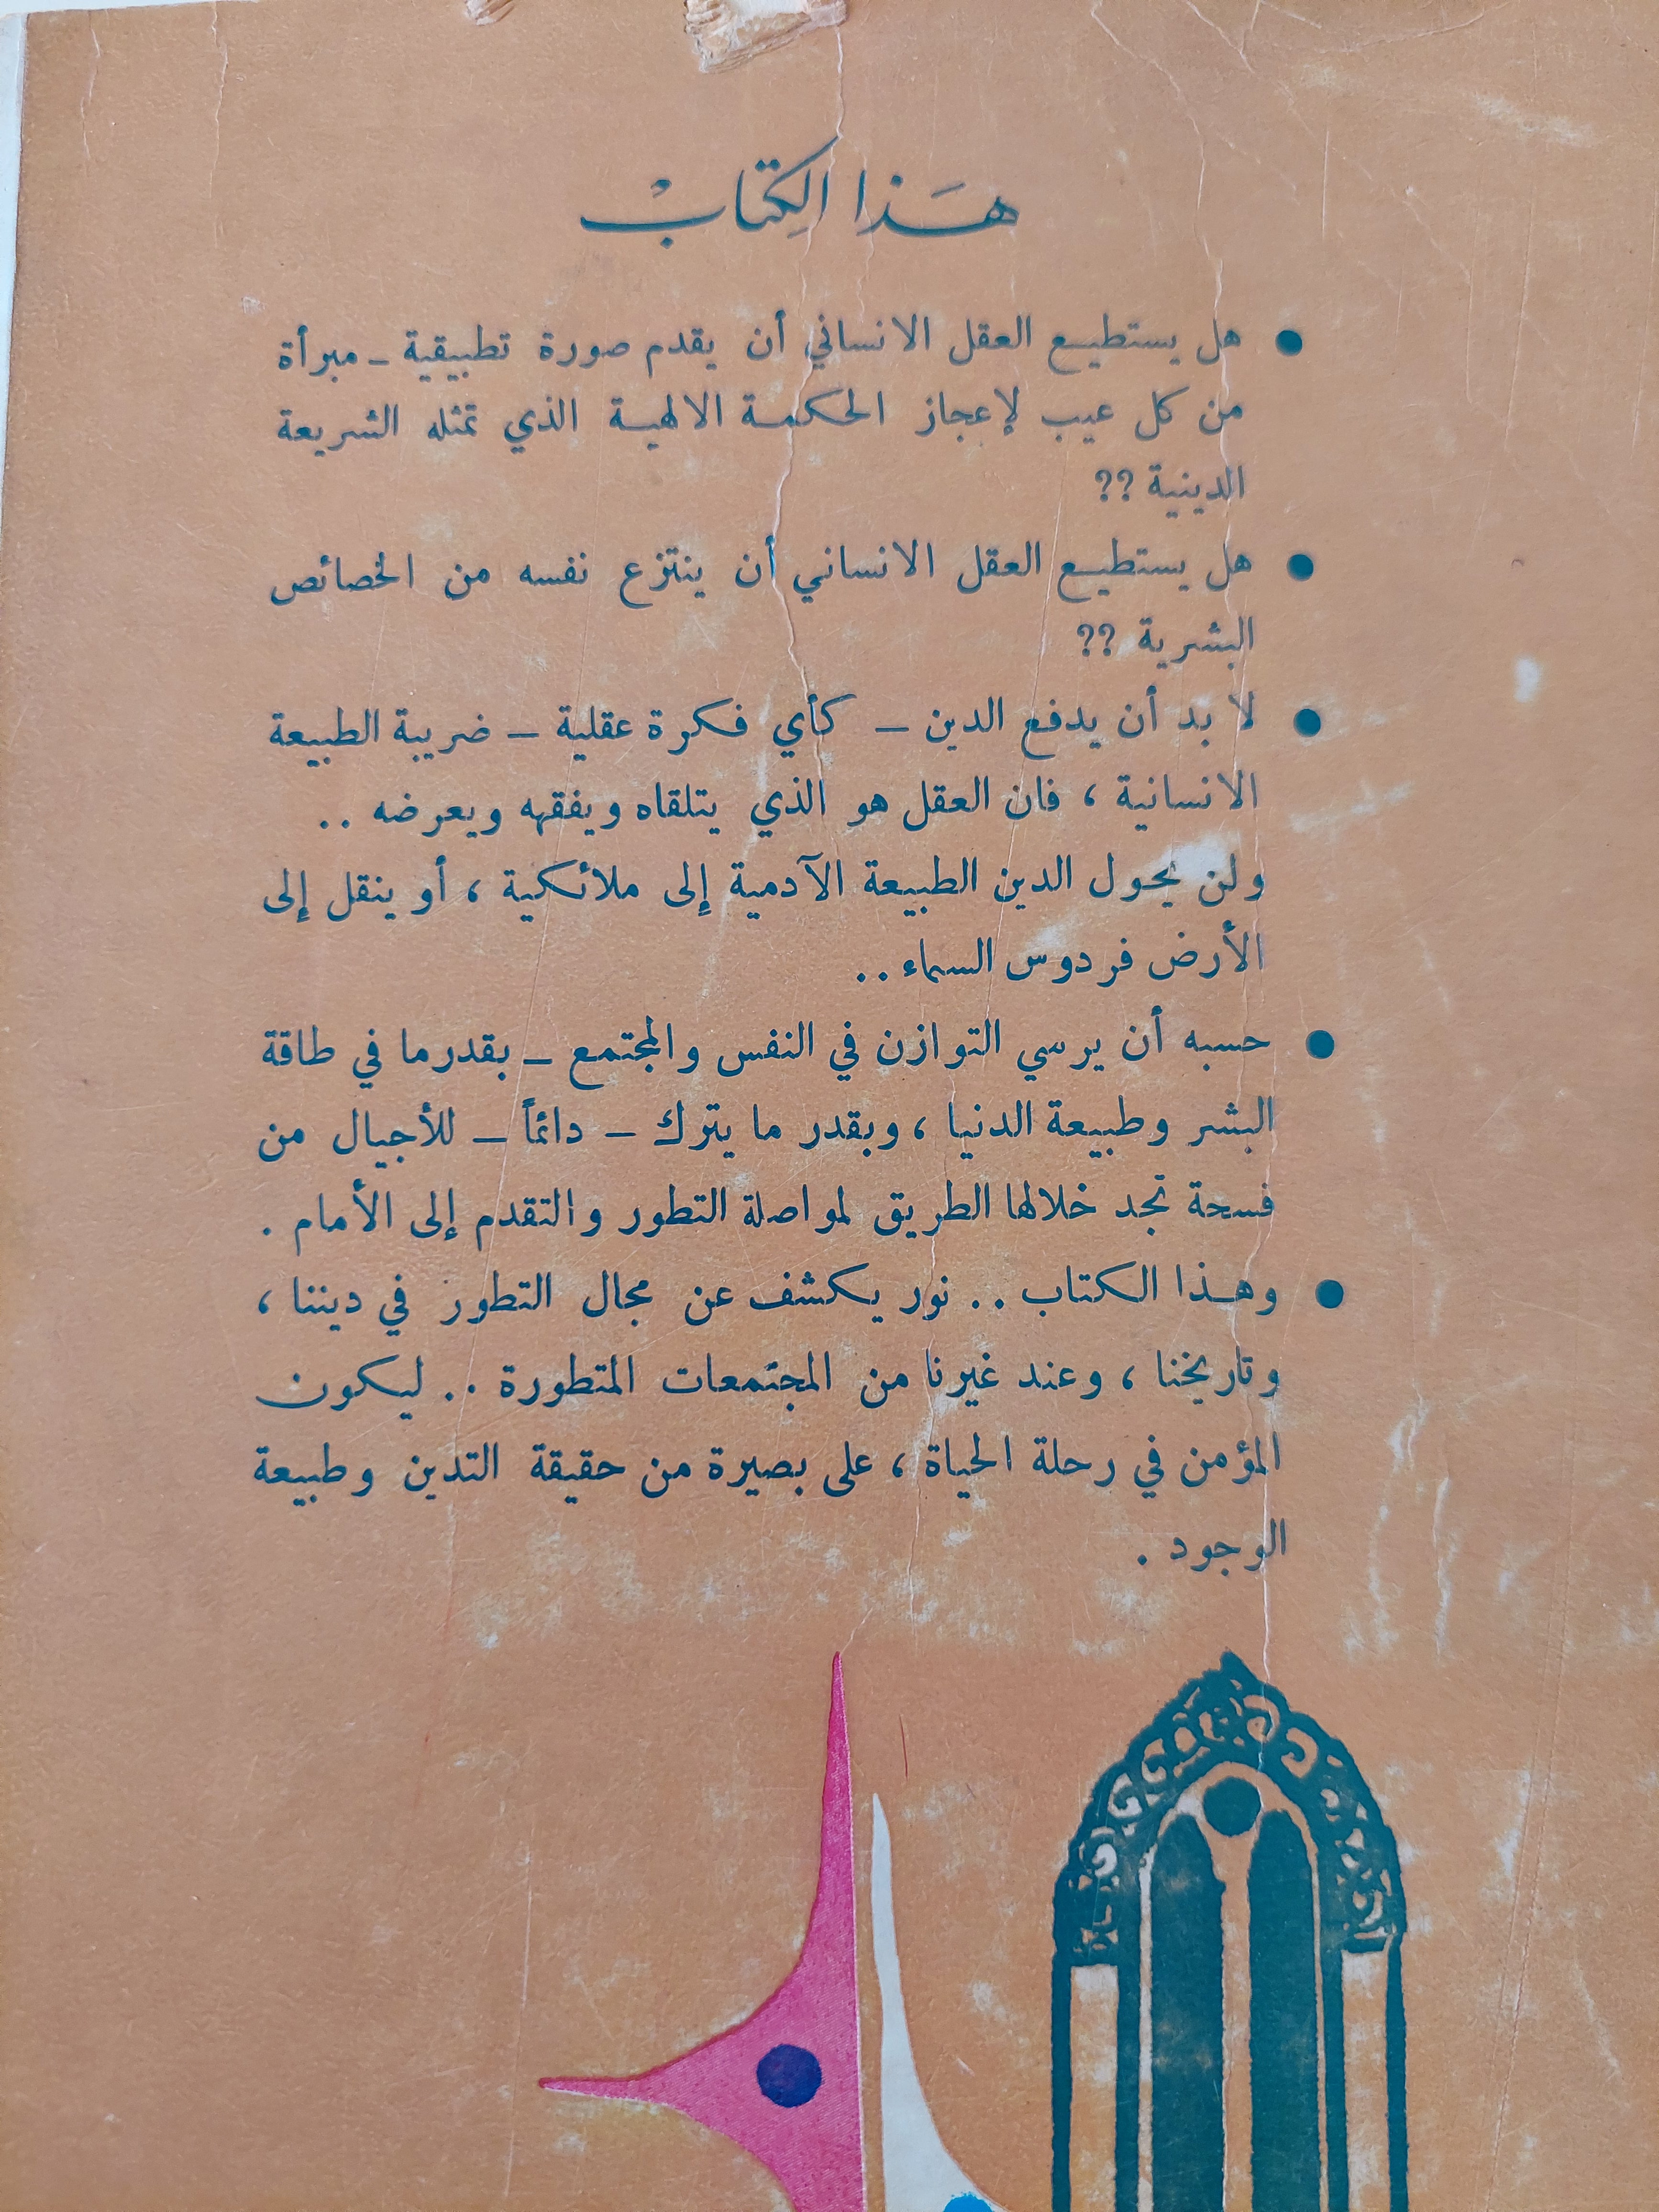 هَذا الكِتابْ
● هل يستطيع العقل الانساني أن يقدم صورة تطبيقية - مبرأة
من كل عيب لإعجاز الحكمة الالهية الذي تمثله الشريعة
الدينية ??
● هل يستطيع العقل الانساني أن ينتزع نفسه من الخصائص
البشرية ??
● لا بد أن يدفع الدين - كأي فكرة عقلية - ضريبة الطبيعة
الانسانية ، فان العقل هو الذي يتلقاه ويفقهه ويعرضه ..
ولن يحول الدين الطبيعة الآدمية إلى ملائكية ، أو ينقل إلى
الأرض فردوس السماء ..
● حسبه أن يرسي التوازن في النفس والمجتمع - بقدر ما في طاقة
البشر وطبيعة الدنيا ، وبقدر ما يترك - دائماً - للأجيال من
فسحة تجد خلالها الطريق لمواصلة التطور والتقدم إلى الأمام .
● وهذا الكتاب .. نور يكشف عن مجال التطور في ديننا ،
وتاريخنا ، وعند غيرنا من المجتمعات المتطورة .. ليكون
المؤمن في رحلة الحياة ، على بصيرة من حقيقة التدين وطبيعة
الوجود .